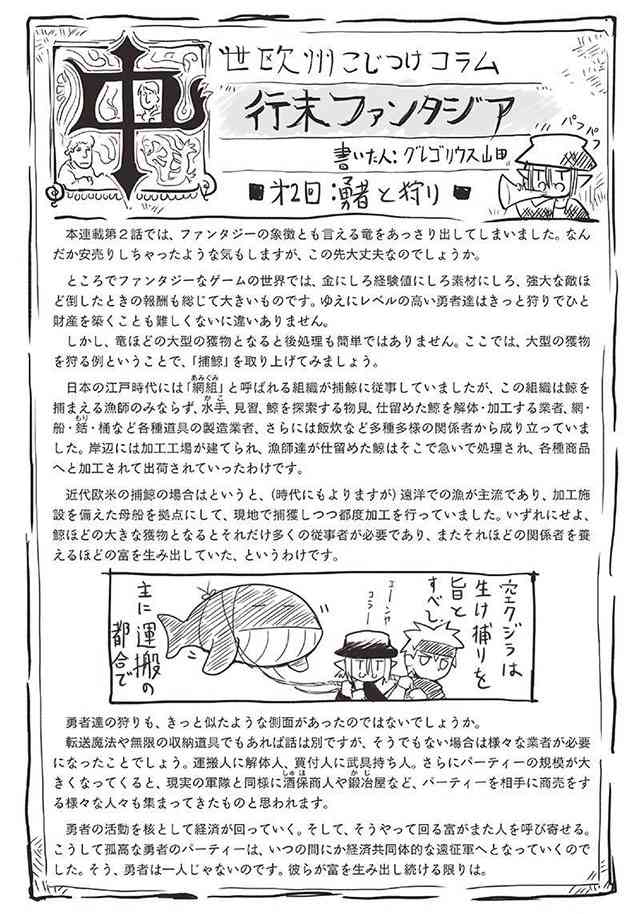 中世欧州こじつけコラム
行末ファンタジア
書いた人:グレゴリウス山田
パフパフ
■第2回:勇者と狩り■
本連載第2話では、ファンタジーの象徴とも言える竜をあっさり出してしまいました。なん
だか安売りしちゃったような気もしますが、この先大丈夫なのでしょうか。
ところでファンタジーなゲームの世界では、金にしろ経験値にしろ素材にしろ、強大な敵ほ
ど倒したときの報酬も総じて大きいものです。ゆえにレベルの高い勇者達はきっと狩りでひと
財産を築くことも難しくないに違いありません。
しかし、竜ほどの大型の獲物となると後処理も簡単ではありません。ここでは、大型の獲物
を狩る例ということで、「捕鯨」を取り上げてみましょう。
あみぐみ
日本の江戸時代には「網組」と呼ばれる組織が捕鯨に従事していましたが、この組織は鯨を
かこ
捕まえる漁師のみならず、水手、見習、鯨を探索する物見、仕留めた鯨を解体・加工する業者、網・
もり
船・銛・桶など各種道具の製造業者、さらには飯炊など多種多様の関係者から成り立っていま
した。岸辺には加工工場が建てられ、漁師達が仕留めた鯨はそこで急いで処理され、各種商品
へと加工されて出荷されていったわけです。
近代欧米の捕鯨の場合はというと、(時代にもよりますが)遠洋での漁が主流であり、加工施
設を備えた母船を拠点にして、現地で捕獲しつつ都度加工を行っていました。いずれにせよ、
鯨ほどの大きな獲物となるとそれだけ多くの従事者が必要であり、またそれほどの関係者を養
えるほどの富を生み出していた、というわけです。
空クジラは
生け捕りを
旨と
すべし
エーンヤ
コラー
主に運搬の
都合で
勇者達の狩りも、きっと似たような側面があったのではないでしょうか。
転送魔法や無限の収納道具でもあれば話は別ですが、そうでもない場合は様々な業者が必要
になったことでしょう。運搬人に解体人、買付人に武具持ち人。さらにパーティーの規模が大
しゅほ かじ
きくなってくると、現実の軍隊と同様に酒保商人や鍛冶屋など、パーティーを相手に商売をす
る様々な人々も集まってきたものと思われます。
勇者の活動を核として経済が回っていく。そして、そうやって回る富がまた人を呼び寄せる。
こうして孤高な勇者のパーティーは、いつの間にか経済共同体的な遠征軍へとなっていくので
した。そう、勇者は一人じゃないのです。彼らが富を生み出し続ける限りは。